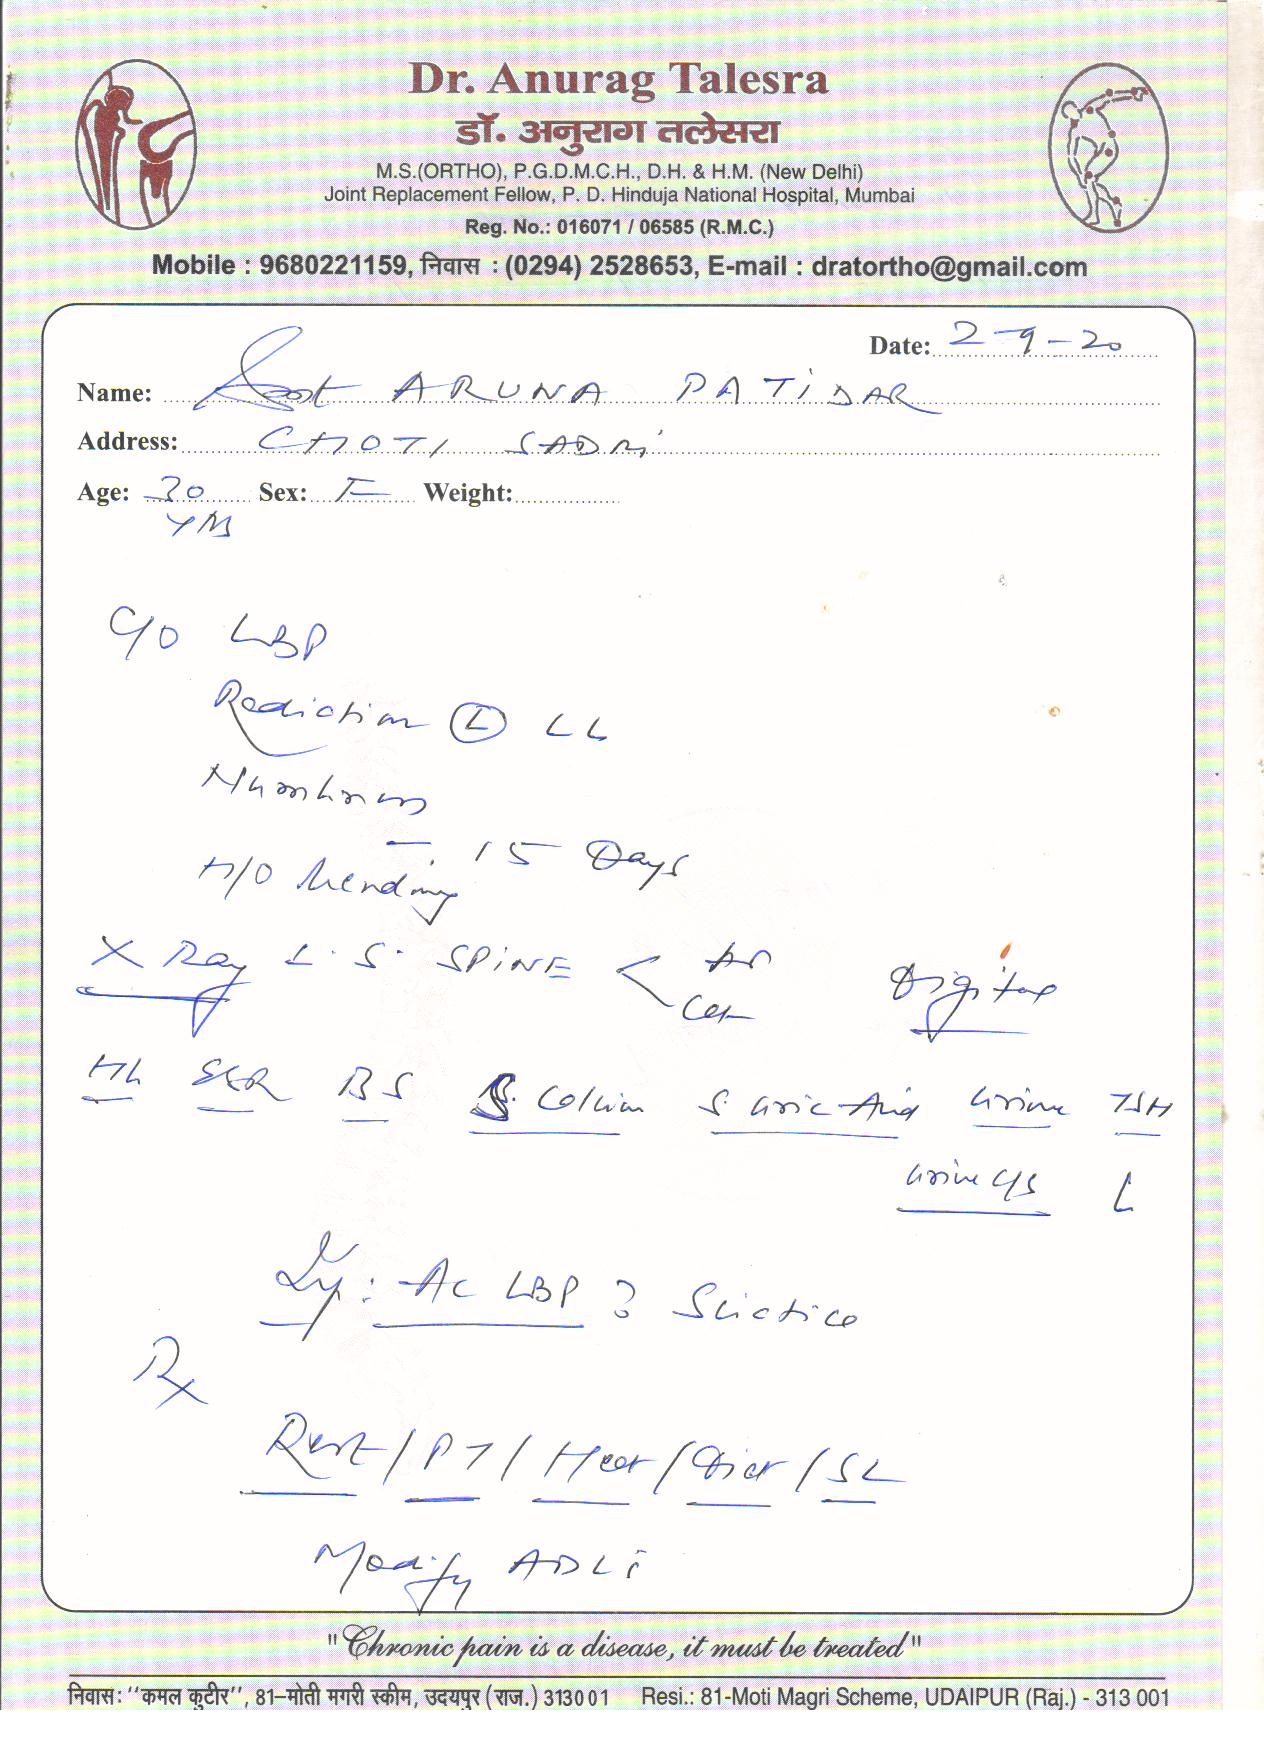 Dr. Anurag Talesra
डॉ. अनुराग तलेसरा
M.S.(ORTHO), P.G.D.M.C.H., D.H. & H.M. (New Delhi)
Joint Replacement Fellow, P. D. Hinduja National Hospital, Mumbai
Reg. No.: 016071 / 06585 (R.M.C.)
Mobile : 9680221159, निवास : (0294) 2528653, E-mail : dratortho@gmail.com
Date: 2-9-20
Name: ARUNA PATIDAR
Address: CHOTI SADRI
Age: 30 Sex: F Weight:
YRS
C/O LBP
Radiation (L) LL
Numbness
- 15 Days
H/O bending
X Ray L.S. SPINE < AP Digital
Lat
Hb ESR BS S. Calcium S. Uric Acid Urine TSH
Urine C/S
Imp: Ac LBP ? Sciatica
Rx
Rest / PT / Heat / Diet / SL
Modify ADLs
"Chronic pain is a disease, it must be treated"
निवास: "कमल कुटीर", 81–मोती मगरी स्कीम, उदयपुर (राज.) 313001 Resi.: 81-Moti Magri Scheme, UDAIPUR (Raj.) - 313 001